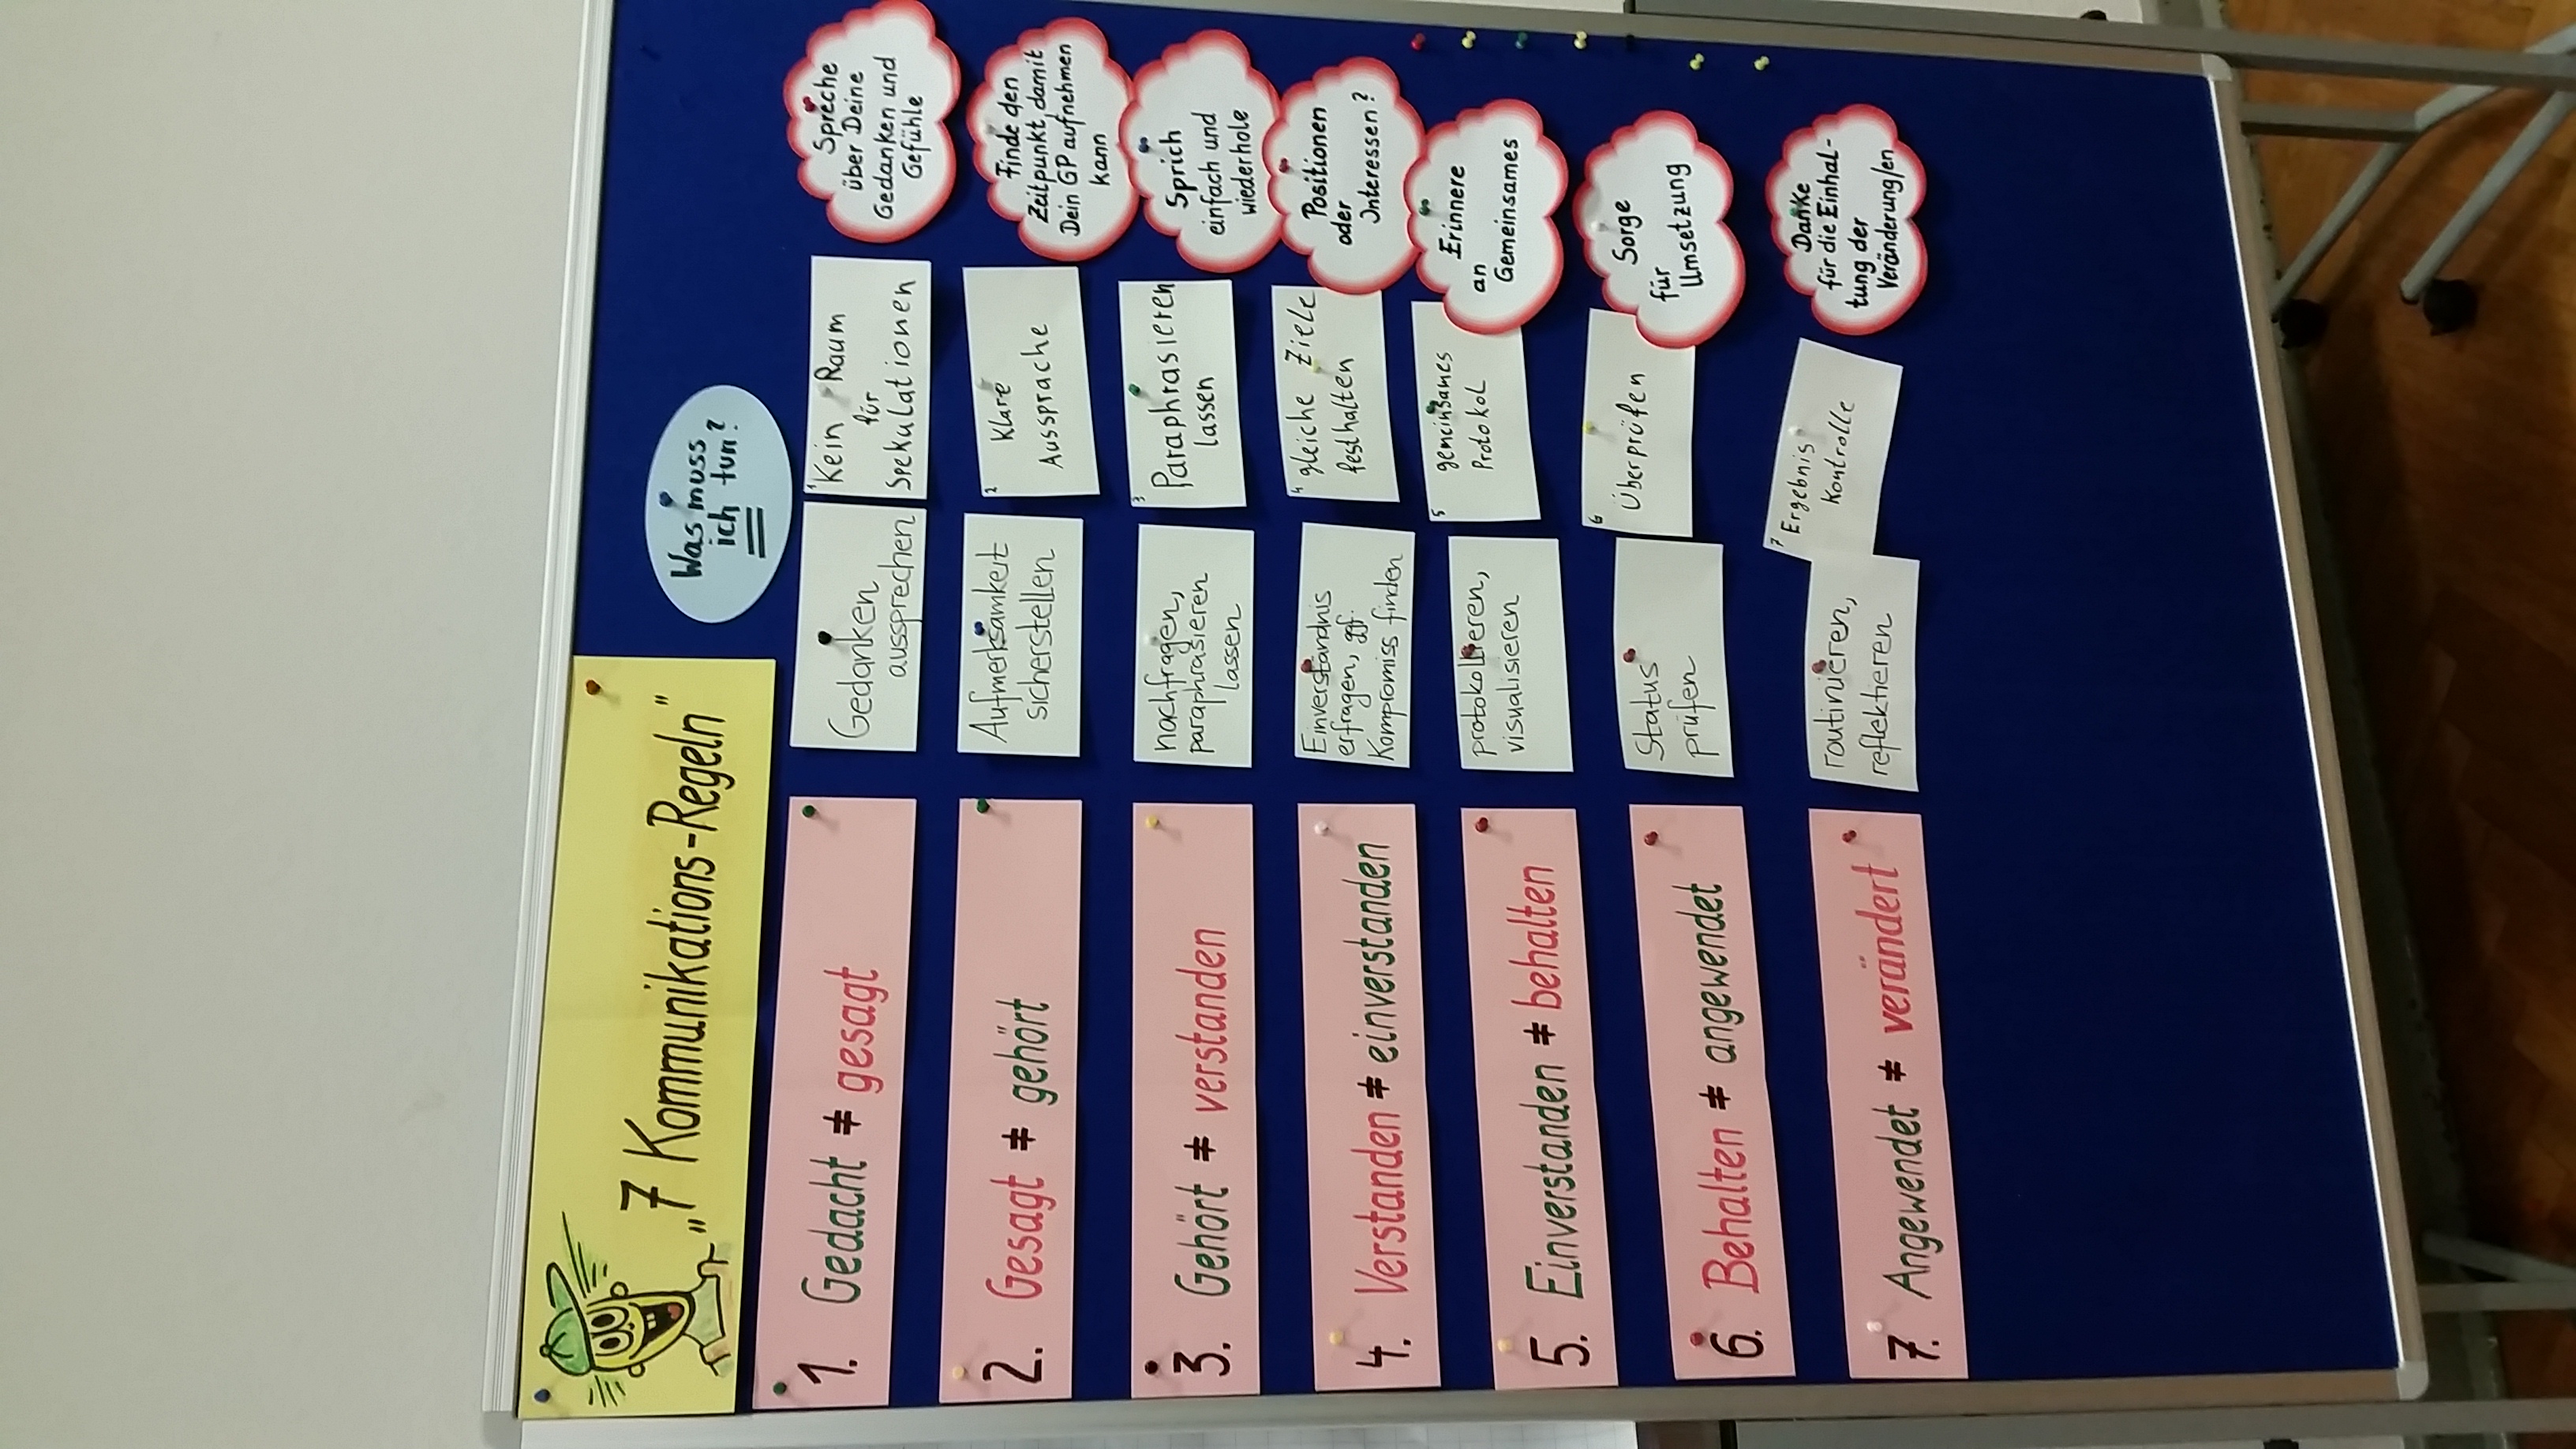 „7 Kommunikations-Regeln"
Was muss
ich tun?
1. Gedacht ≠ gesagt
Gedanken
aussprechen
1
Kein Raum
für
Spekulationen
Spreche
über Deine
Gedanken und
Gefühle
2. Gesagt ≠ gehört
Aufmerksamkeit
sicherstellen
2
Klare
Aussprache
Finde den
Zeitpunkt, damit
Dein GP aufnehmen
kann
3. Gehört ≠ verstanden
nachfragen,
paraphrasieren
lassen
3
Paraphrasieren
lassen
Sprich
einfach und
wiederhole
4. Verstanden ≠ einverstanden
Einverständnis
erfragen, ggf.
Kompromiss finden
4
gleiche Ziele
festhalten
Positionen
oder
Interessen?
5. Einverstanden ≠ behalten
protokollieren,
visualisieren
5
gemeinsames
Protokol
Erinnere
an
Gemeinsames
6. Behalten ≠ angewendet
Status
prüfen
6
Überprüfen
Sorge
für
Umsetzung
7. Angewendet ≠ verändert
routinieren,
reflektieren
7
Ergebnis
Kontrolle
Danke
für die Einhal-
tung der
Veränderung/en